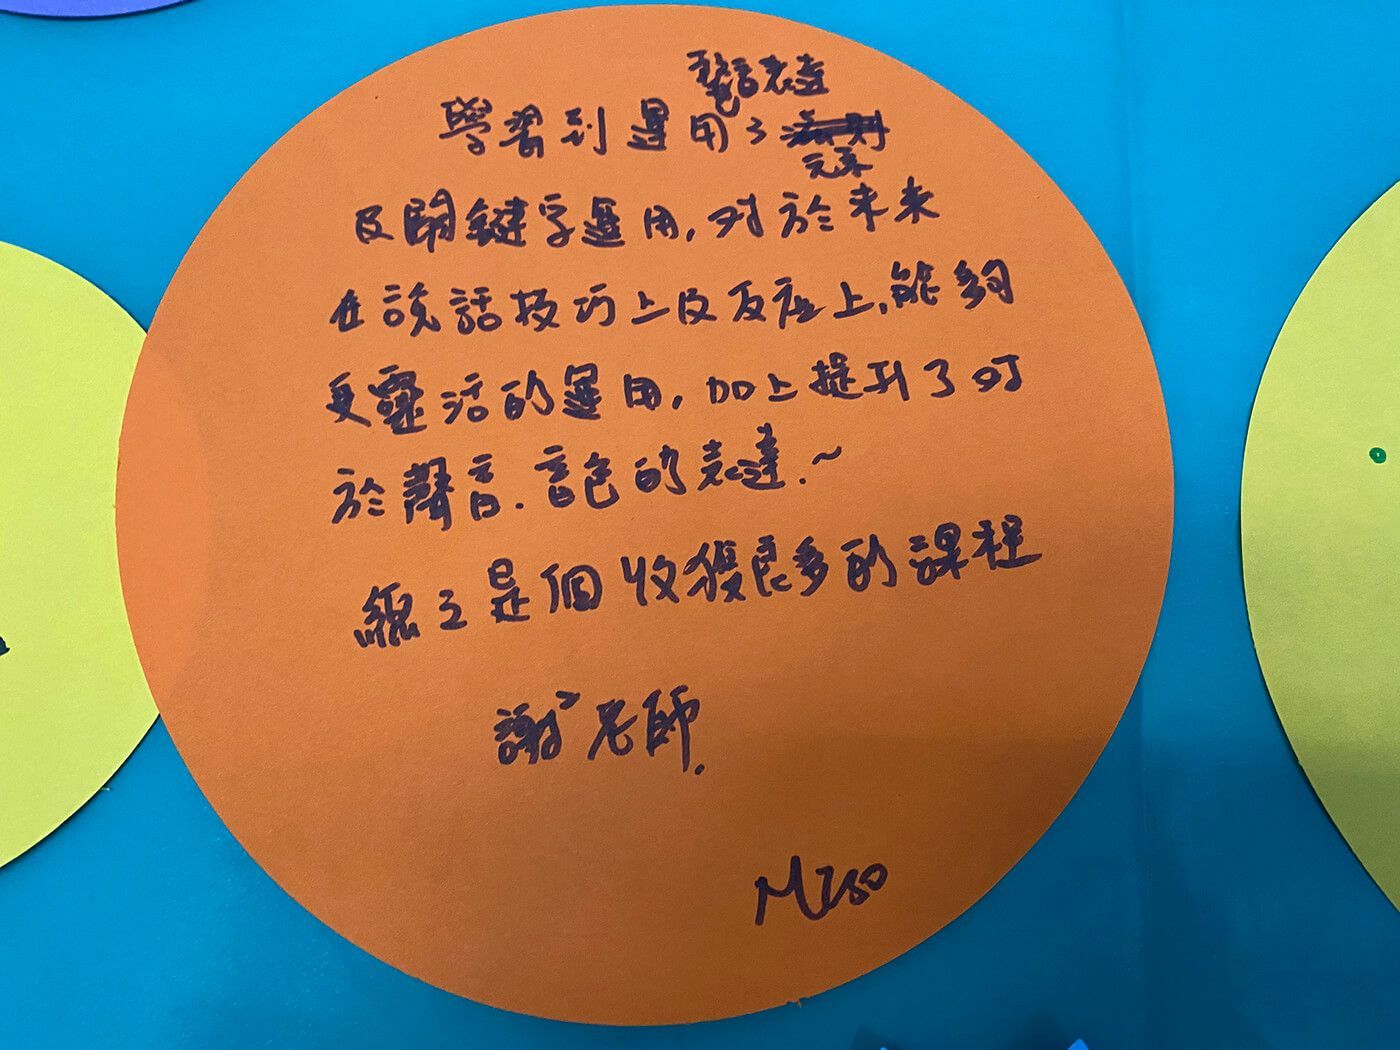 表達
學習到運用了
元素
及關鍵字運用,對於未來
在說話技巧上及反應上,能夠
更靈活的運用,加上提升了對
於聲音.音色的表達.~
總之是個收獲良多的課程
謝〻老師.
Miso